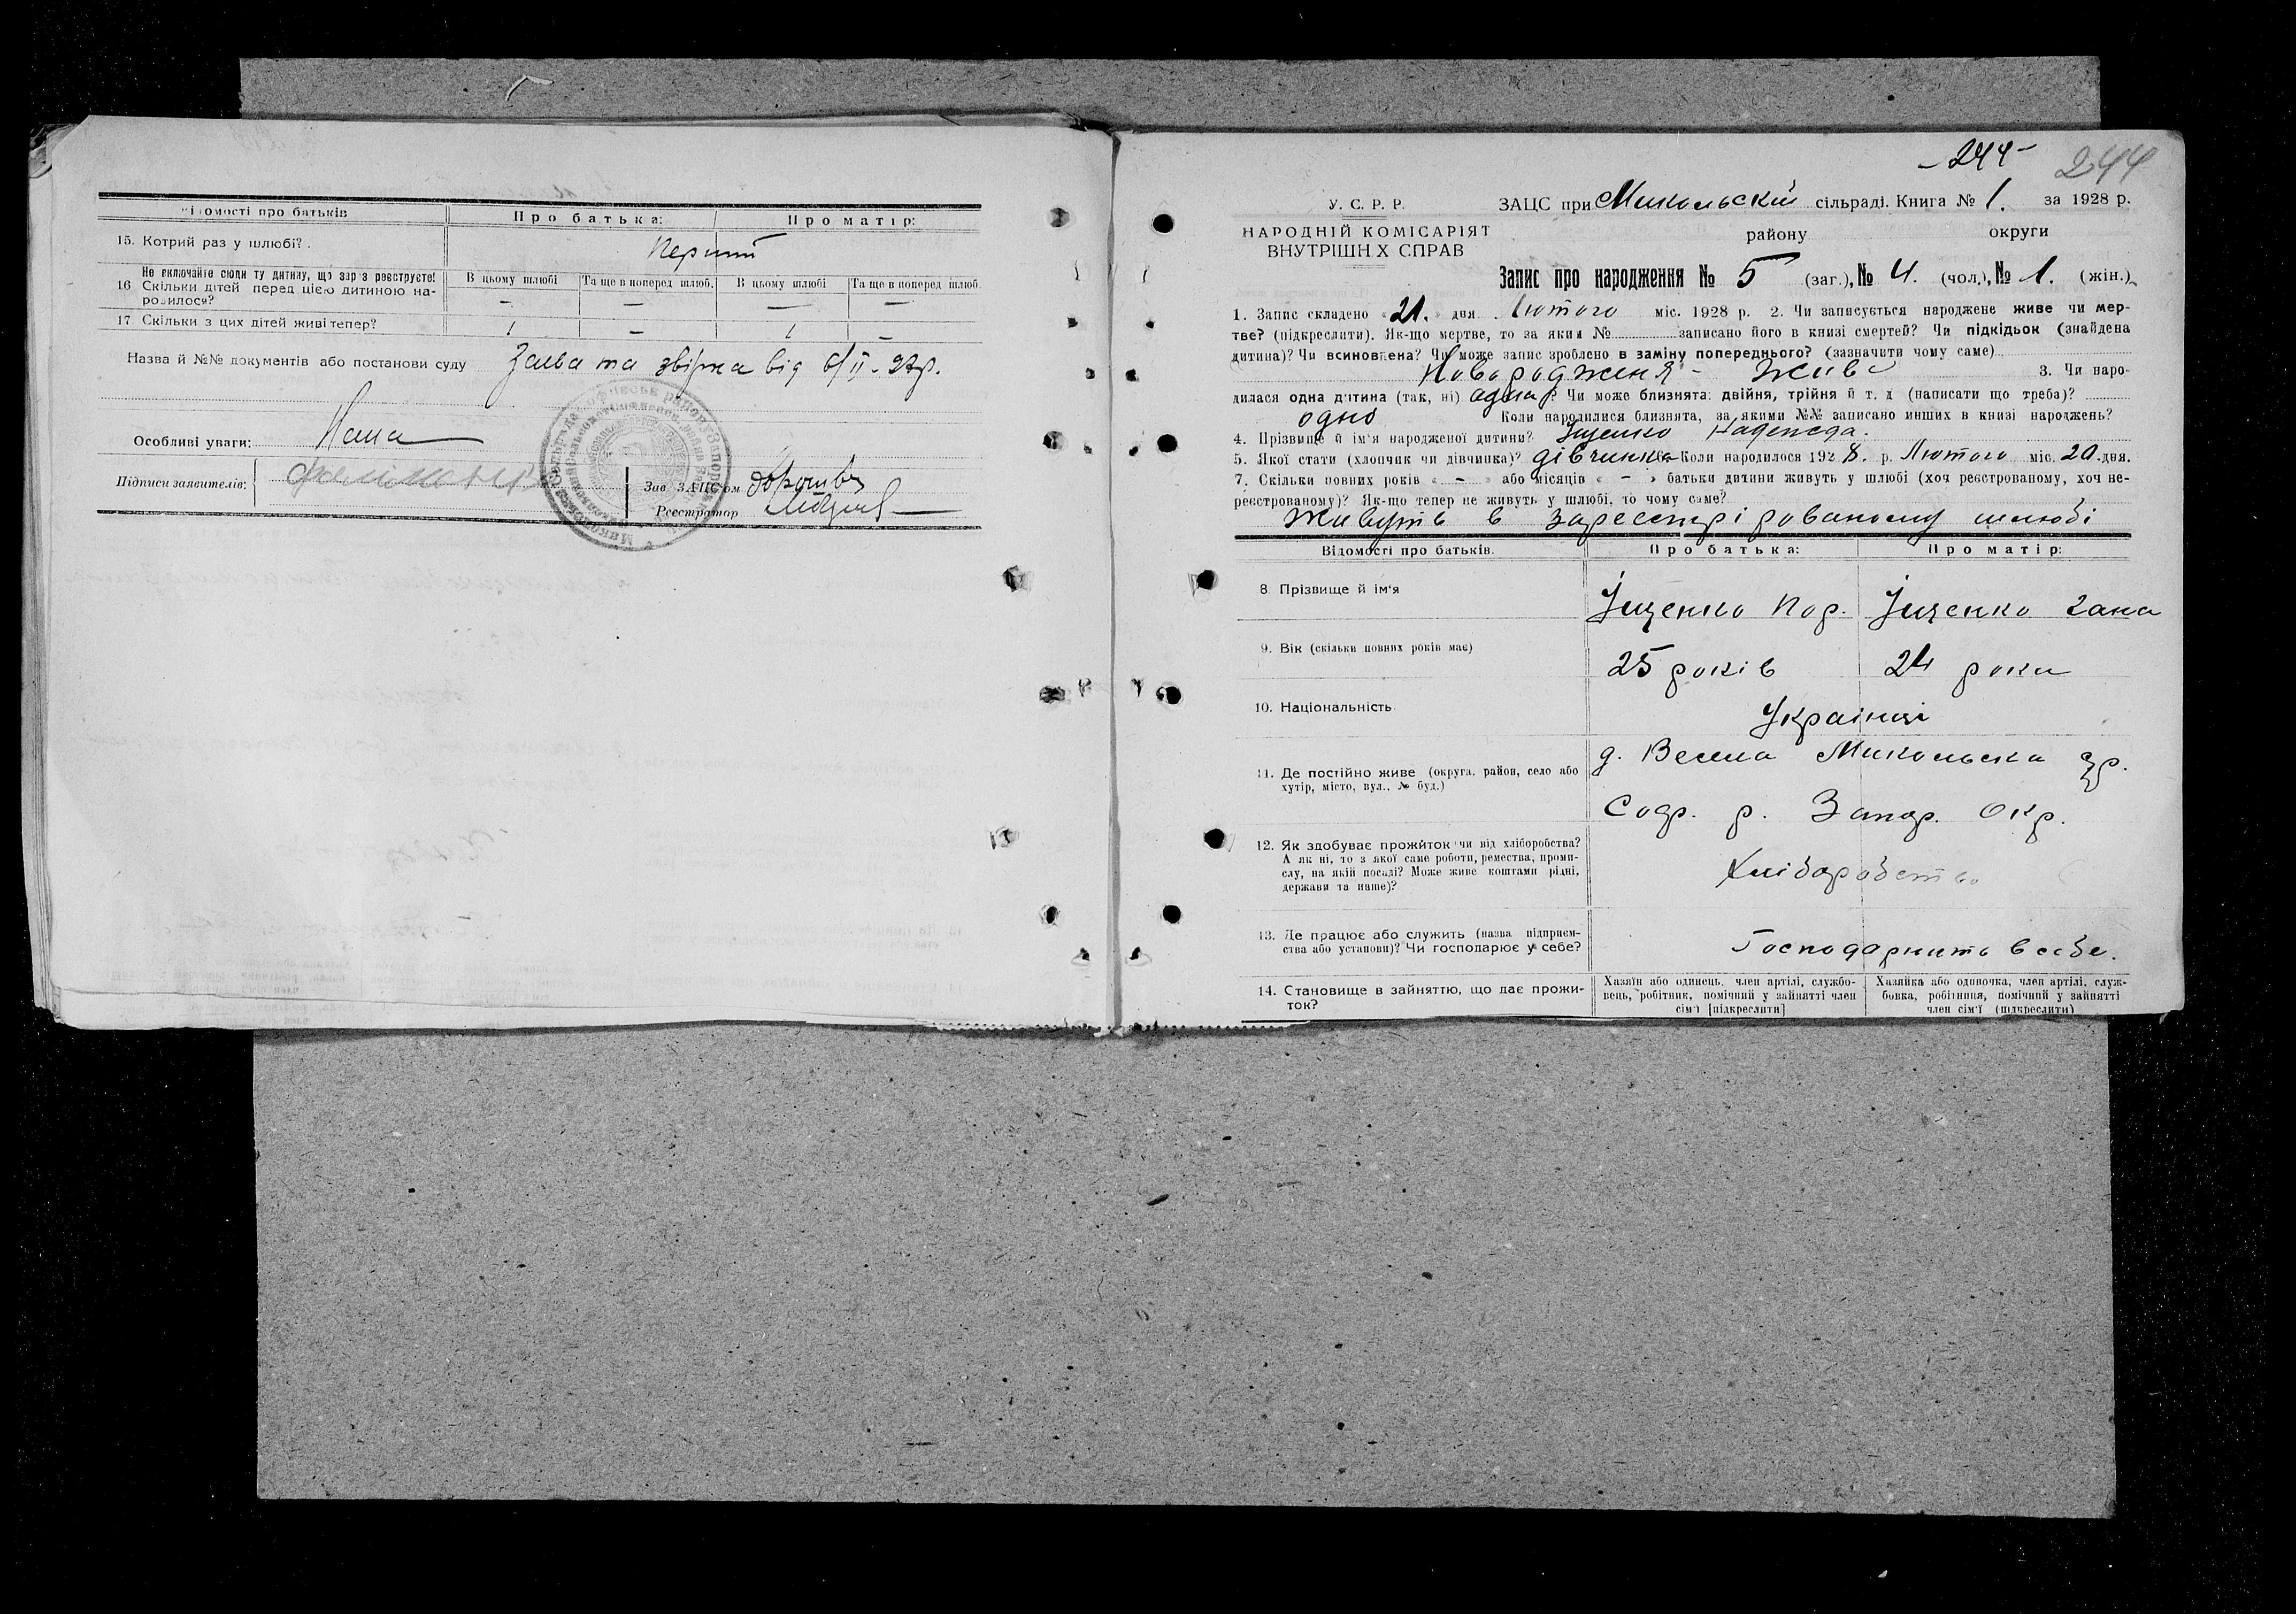 Відомості про батьків
Про батька:
Про матір:
15. Котрий раз у шлюбі?
Перший
Не включайте сюди ту дитину, що зараз реєструєте!
16 Скільки дітей перед цією дитиною народилося?
В цьому шлюбі
Та ще в поперед. шлюб.
В цьому шлюбі
Та ще в поперед шлюб.
— — — —
17 Скільки з цих дітей живі тепер?
1 — 1 —
Назва й №№ документів або постанови суду
Заява та звірка від 6/ІІ-27р.
Особливі уваги:
Нема
Підписи заявителів:
Зав ЗАЦС'ом
Реєстратор
-244-
244
У. С. Р. Р.
НАРОДНІЙ КОМІСАРІЯТ
ВНУТРІШН Х СПРАВ
ЗАЦС при Микольскій сільраді. Книга № 1. за 1928 р.
району округи
Запис про народження № 5 (заг.), № 4. (чол.), № 1. (жін.)
1. Запис складено «21.» дня Лютого міс. 1928 р. 2. Чи записується народжене живе чи мер-
тве? (підкреслити). Як-що мертве, то за яким № записано його в книзі смертей? Чи підкідьок (знайдена
дитина)? Чи всиновлена? Чи може запис зроблено в заміну попереднього? (зазначити чому саме)
Новородженя - живе 3. Чи наро-
дилася одна дитина (так, ні) одна? Чи може близнята: двійня, трійня й т. д (написати що треба)?
одно Коли народилися близнята, за якими №№ записано инших в книзі народжень?
4. Прізвище й ім'я народженої дитини? Іщенко Надежда.
5. Якої стати (хлопчик чи дівчинка)? дівчинка Коли народилося 1928. р. Лютого міс. 20 дня.
7. Скільки повних років « - » або місяців « - » батьки дитини живуть у шлюбі (хоч реєстрованому, хоч не-
реєстрованому)? Як-що тепер не живуть у шлюбі, то чому саме?
Живуть в зареєстрірованому шлюбі
Відомості про батьків.
Про батька:
Про матір:
8. Прізвище й ім'я
Іщенко Пор.
Іщенко Гана
9. Вік (скільки повних років має)
25 років
24 роки
10. Національність
Українці
11. Де постійно живе (округа, район, село або
хутір, місто, вул., № буд.)
д. Весела Микольска
Соф. р. Запор. Окр.
12. Як здобуває прожиток чи від хліборобства?
А як ні, то з якої саме роботи, ремества, проми-
слу, на якій посаді? Може живе коштами рідні,
держави та инше)?
Хліборобство
13. Де працює або служить (назва підприєм-
ства або установи)? Чи господарює у себе?
Господарить в себе.
14. Становище в зайняттю, що дає прожи-
ток?
Хазяїн або одинець, член артілі, службо-
вець, робітник, помічний у зайнятті член
сім'ї [підкреслити]
Хазяйка або одиночка, член артілі, служ-
бовка, робітниця, помічний у зайнятті
член сім'ї (підкреслити)